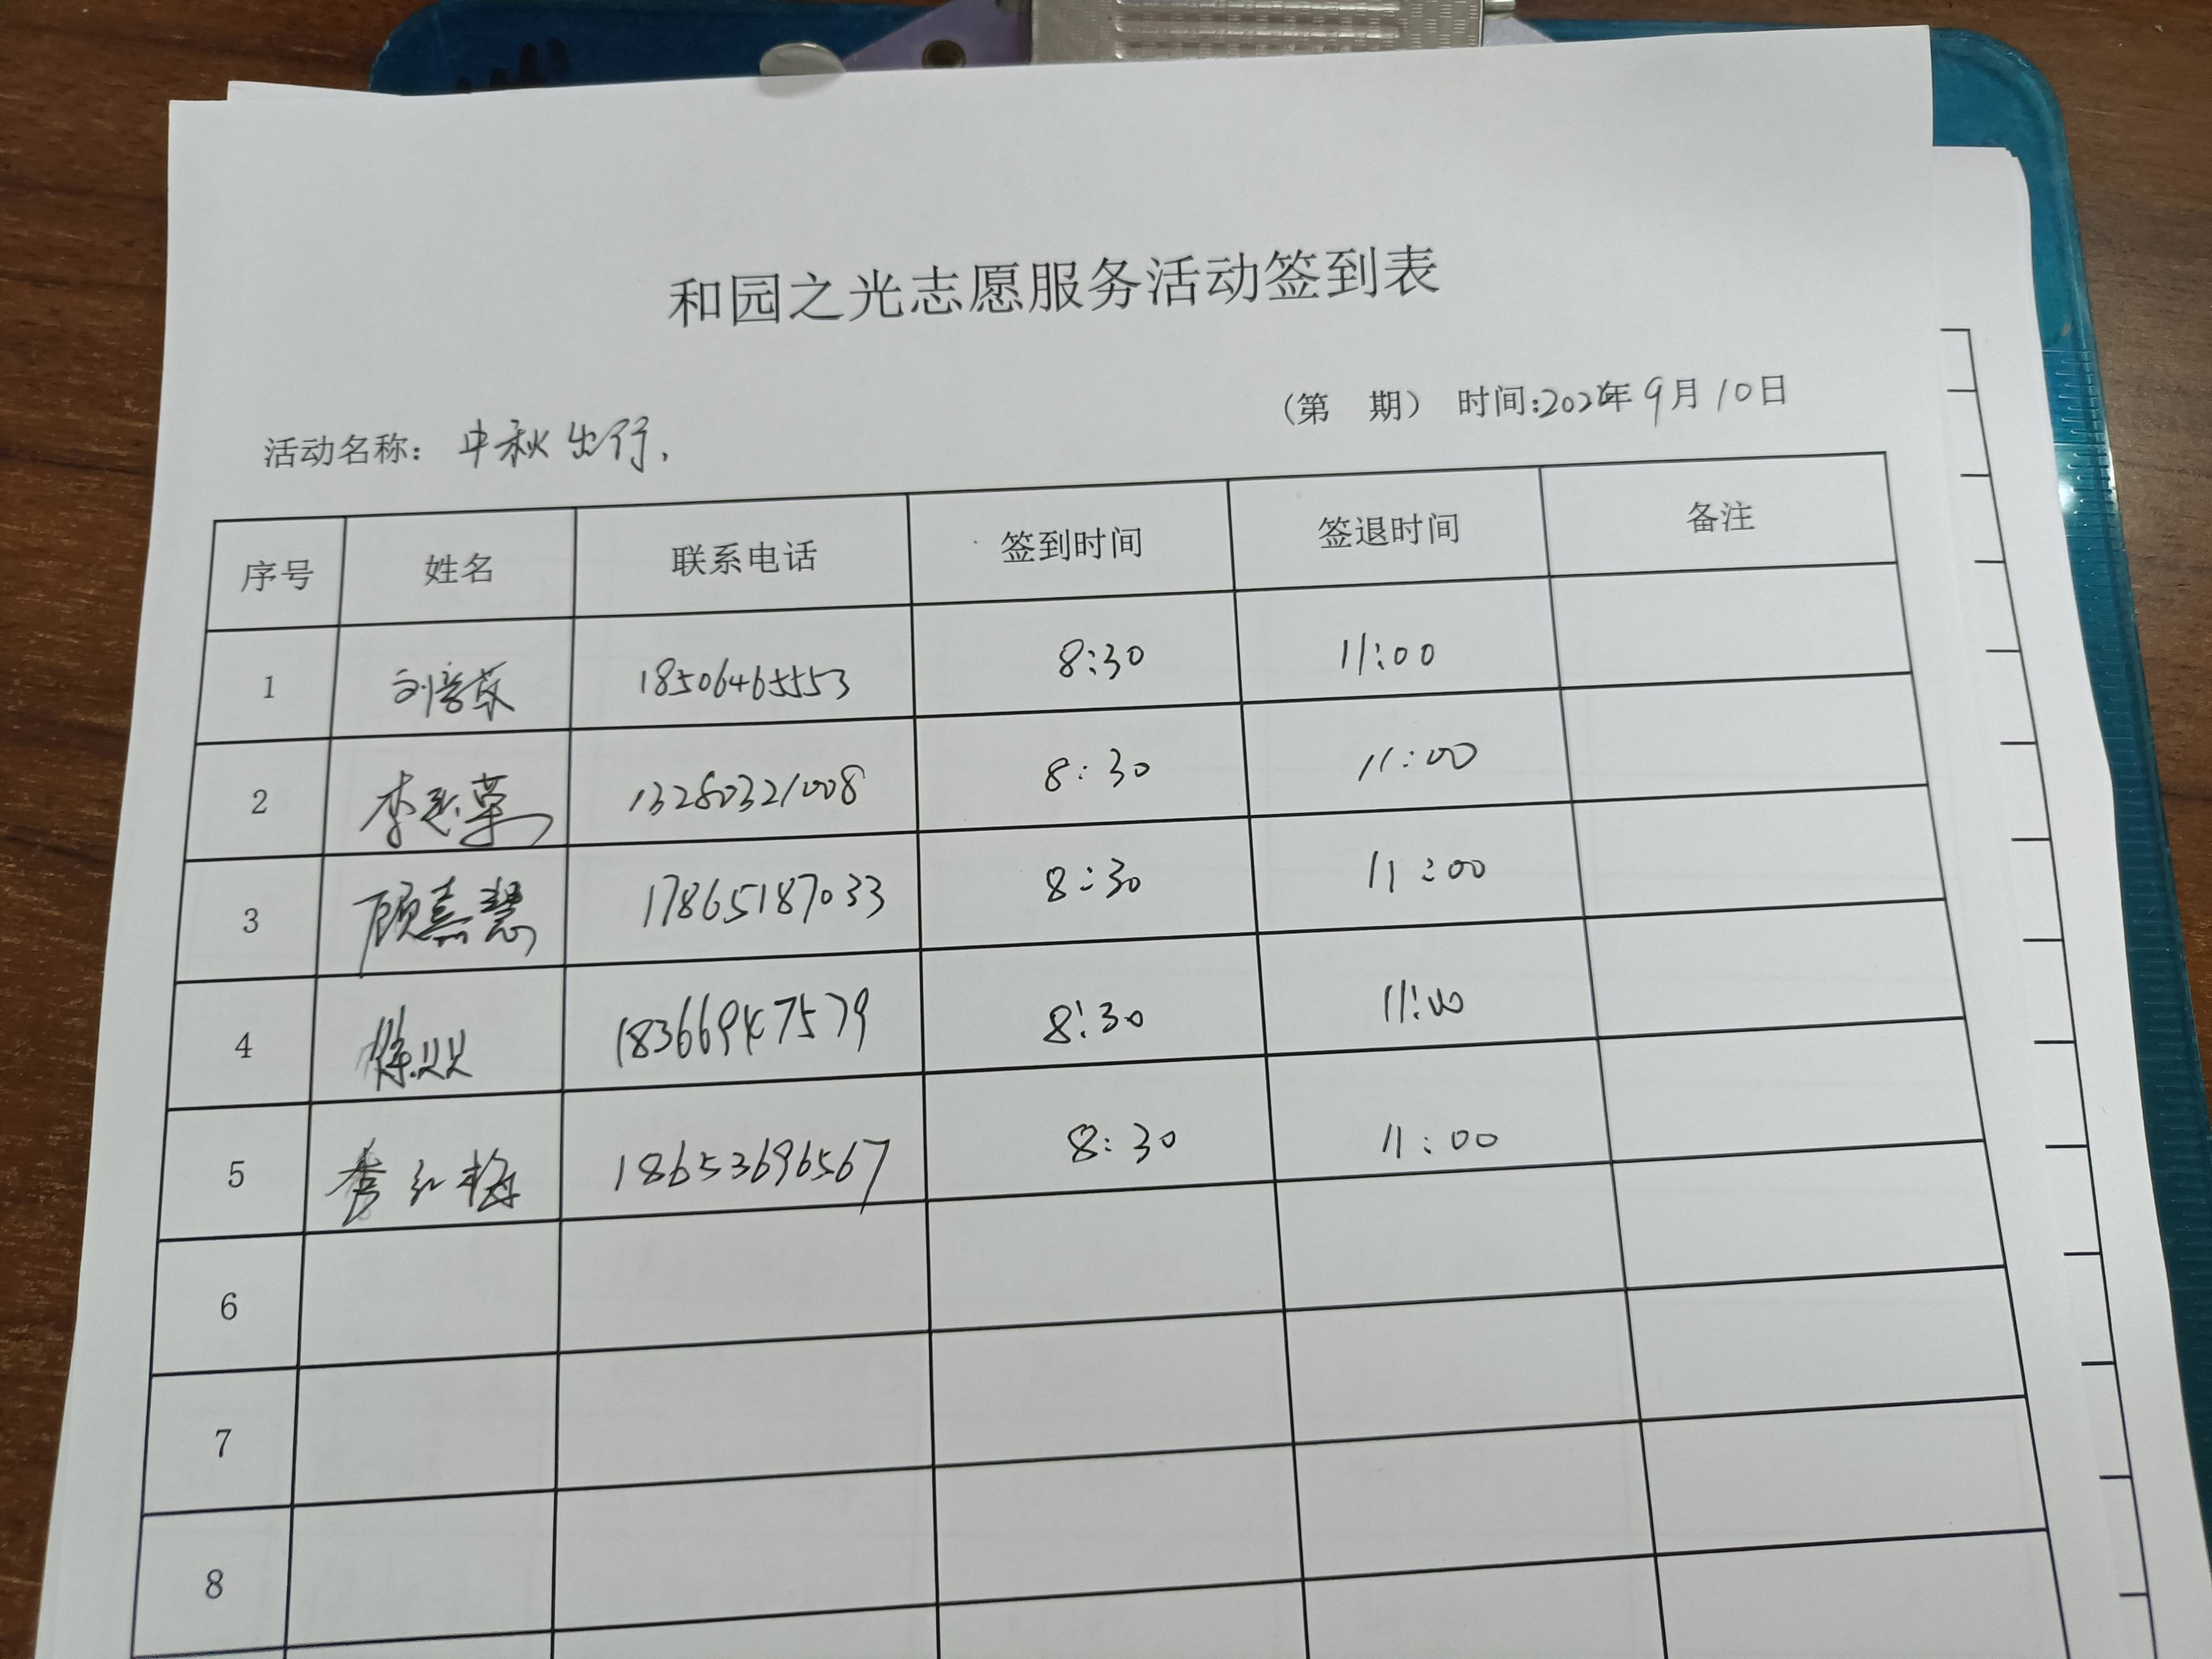 和园之光志愿服务活动签到表
(第 期) 时间:2022年9月10日
活动名称: 中秋出行.
序号 姓名 联系电话 签到时间 签退时间 备注
1 18506465553 8:30 11:00
2 13280321008 8:30 11:00
3 顾熹慧 17865187033 8:30 11:00
4 徐双 18366947579 8:30 11:00
5 李红梅 18653696567 8:30 11:00
6
7
8